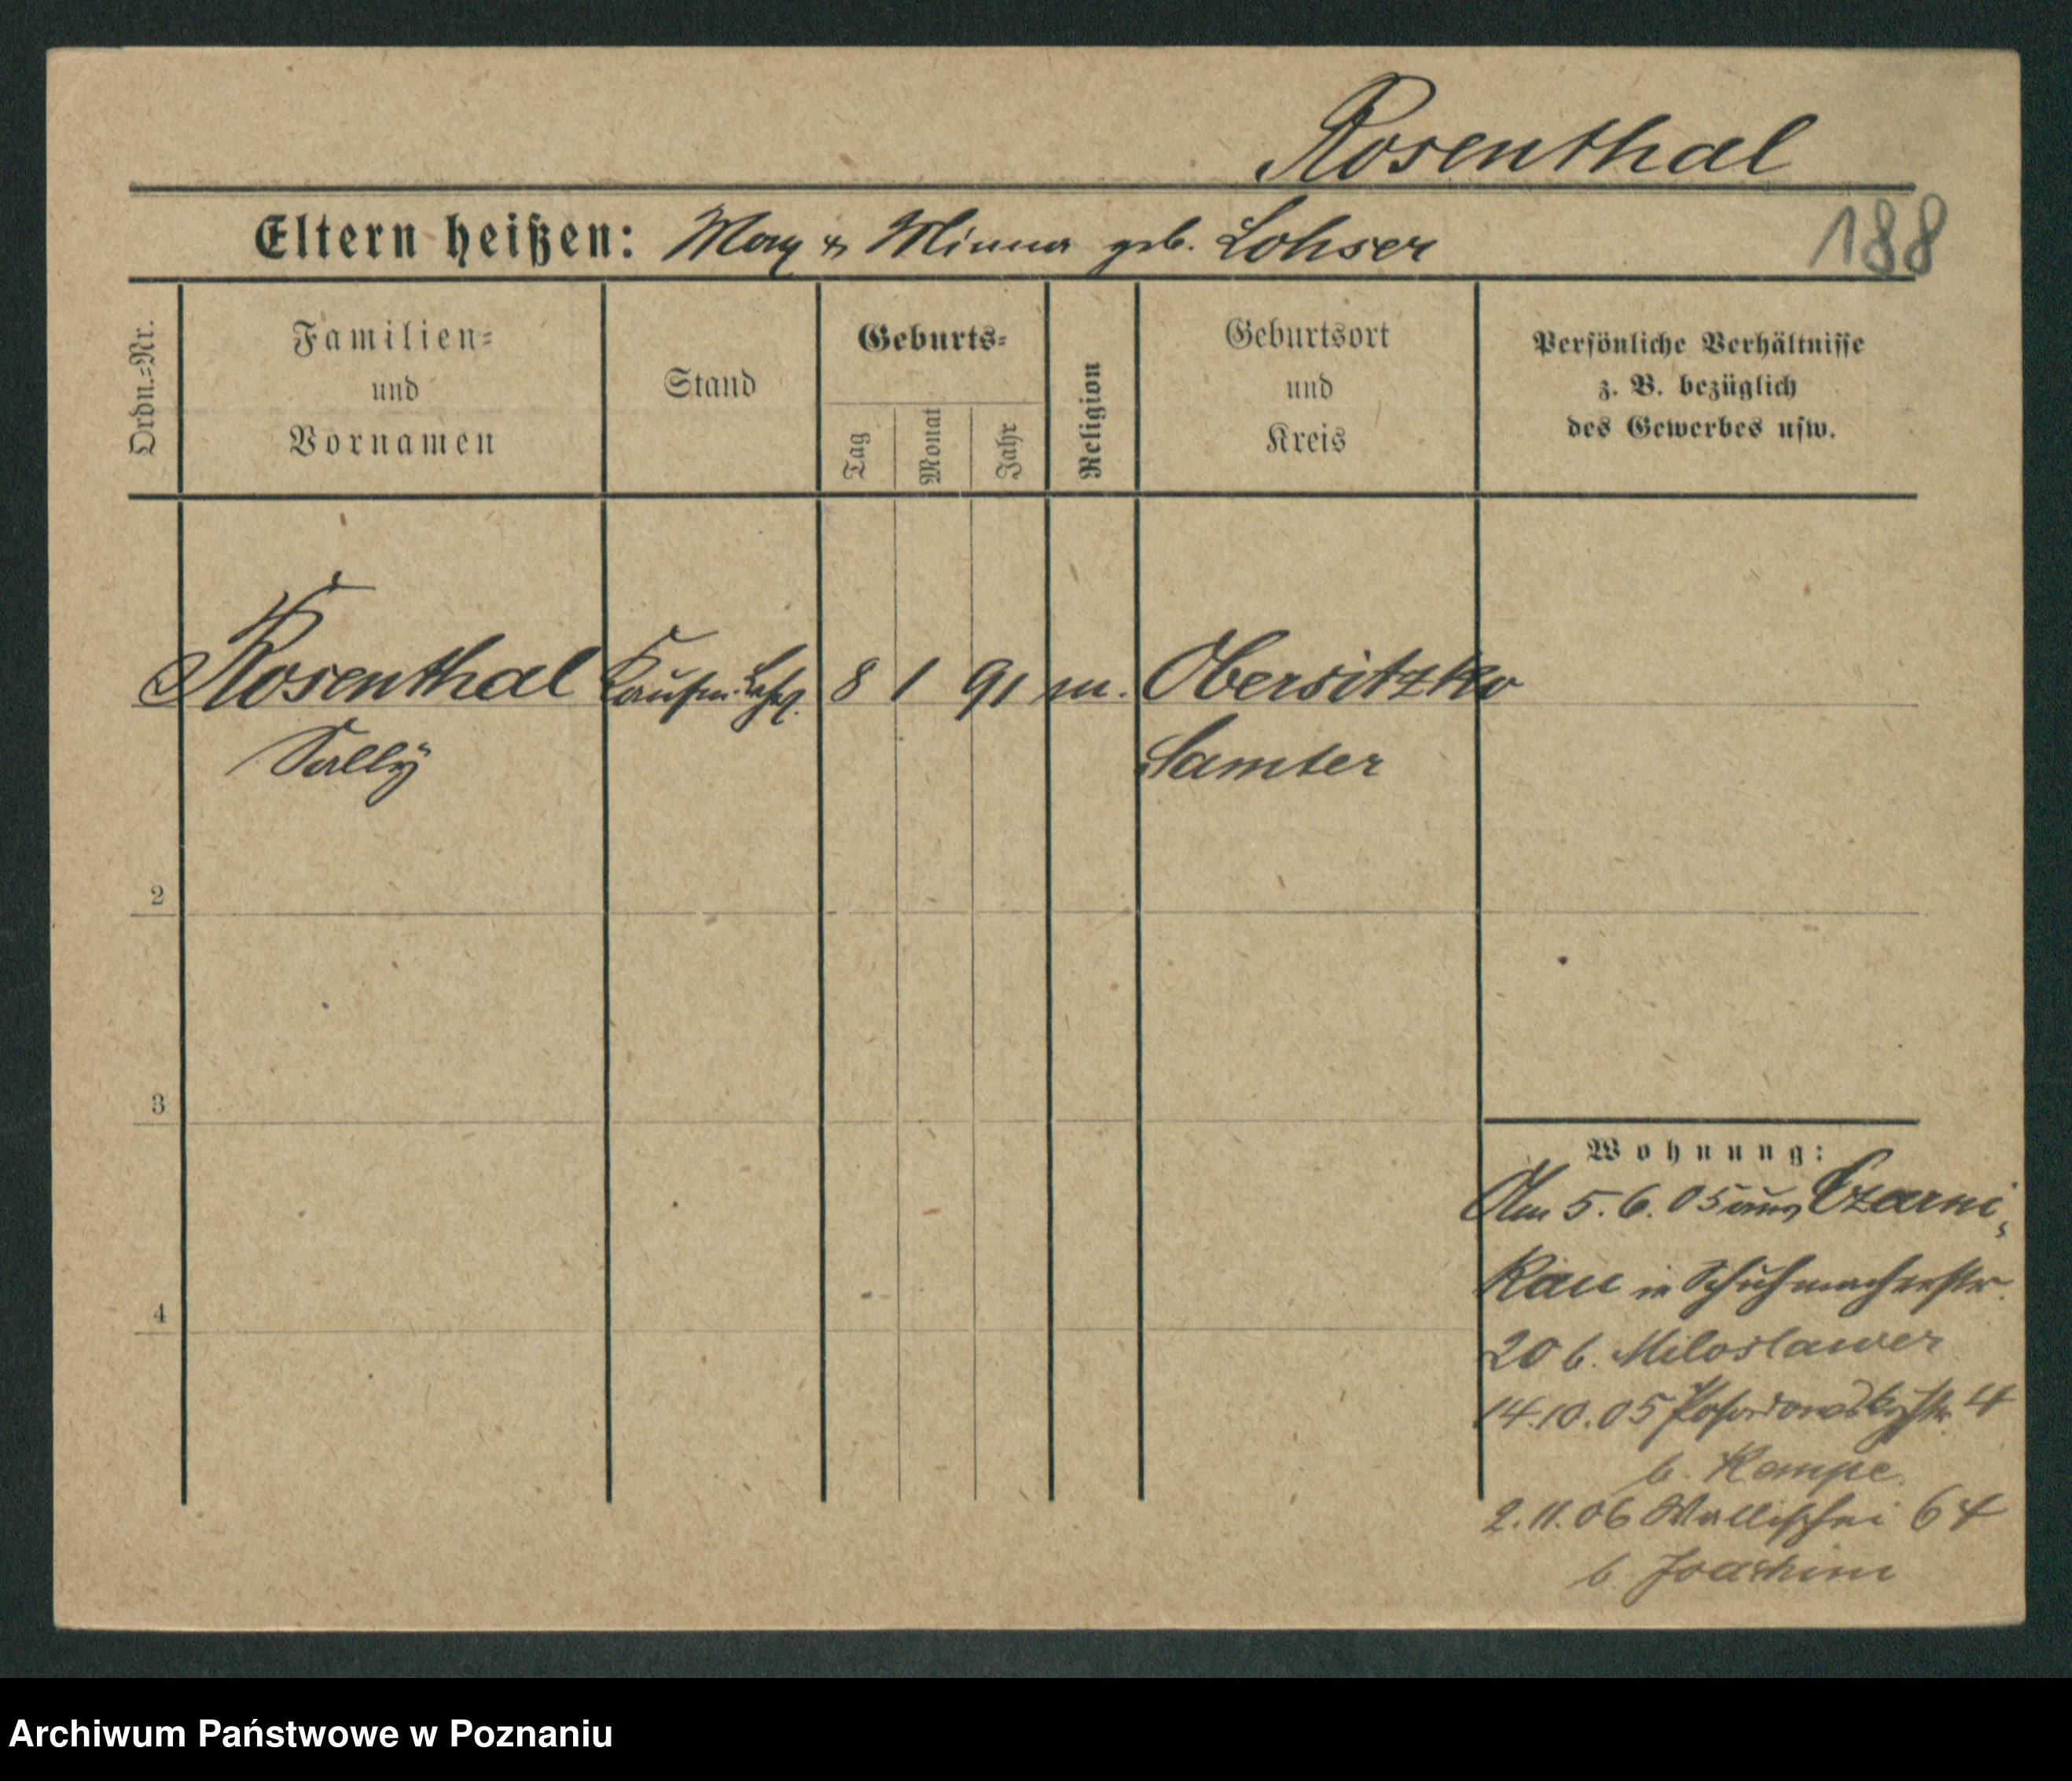 Rosenthal
188
Eltern heißen: Max & Minna geb. Lohser
Ordn.=Nr.
Familien=
und
Vornamen
Stand
Geburts=
Tag
Monat
Jahr
Religion
Geburtsort
und
Kreis
Persönliche Verhältnisse
z. B. bezüglich
des Gewerbes usw.
Rosenthal Kaufm. 8 1 91 m. Obersitzko
Sally Samter
2
3
4
Wohnung:
Am 5. 6. 05 aus Czarni
kau in Schuhmacherstr.
20 b. Miloslawer
14.10.05 Posadowskystr. 4
b. Kempe
2.11.06 Wallischei 64
b. Joachim
Archiwum Państwowe w Poznaniu